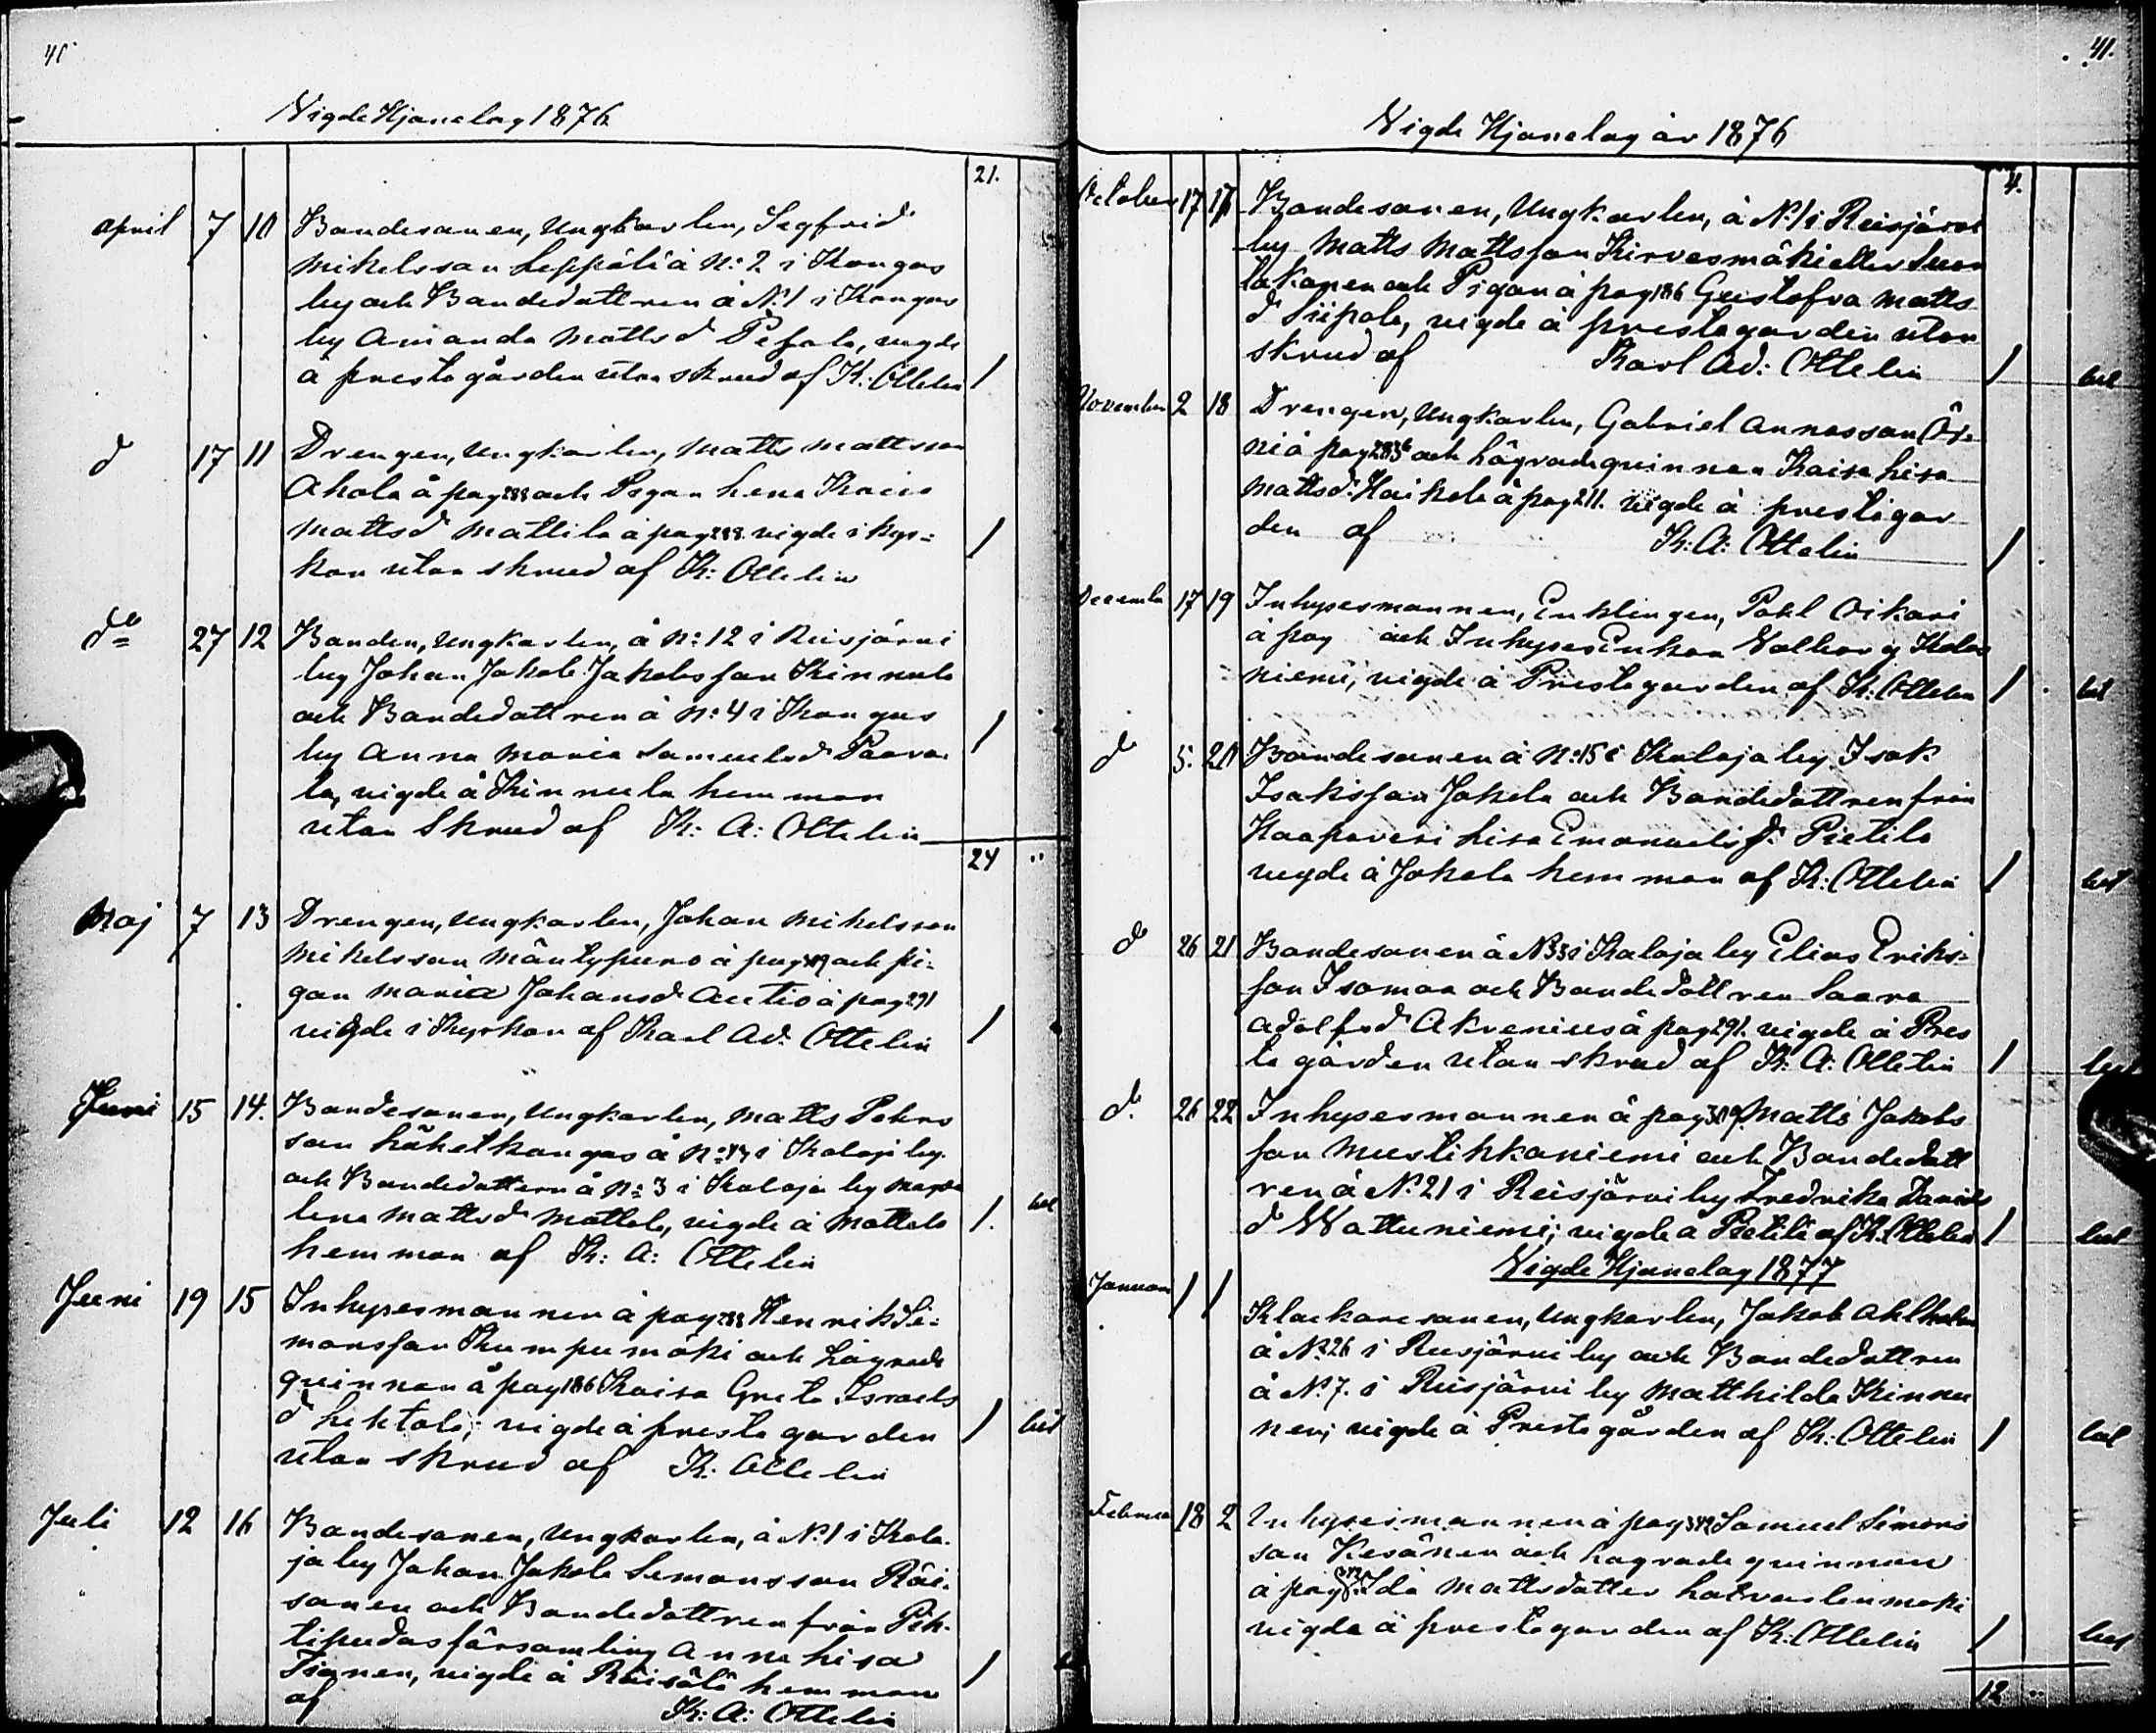 40
Vigde Hjonelag 1876
21.
April 7 10 Bondesonen, Ungkarlen, Segfrid
Mikelsson Leppälä å N:o 2 i Kangas
by och Bondedottren å N:o 1 i Kangas
by Amanda Mattsd Pesola, vigde
å prestegården utan skrud af K: Ottelin 1
d 17 11 Drengen, Ungkarlen, Matts Mattsson
Ahola å pag 288 och Pigan Lena Kaisa
Mattsd Mattila å pag 288. vigde i kyr=
kan utan skrud af K: Ottelin 1
do 27 12 Bonden, Ungkarlen, å N:o 12 i Reisjärvi
by Johan Jakob Jakobsson Kinnula
och Bondedottren å N:o 4 i Kangas
by Anna Maria Samuelsd Paava-
la, vigde å Kinnula hemman 1
utan Skrud af K: A: Ottelin
24 "
Maj 7 13 Drengen, Ungkarlen, Johan Mikelsson
Mikelsson Mäntypuro å pag och pi-
gan Maria Johansd Autio å pag 291
vigde i Kyrkan af Karl Ad. Ottelin 1
Juni 15 14. Bondesonen, Ungkarlen, Matts Pehrs
son Lähetkangas å N:o i Kalaja by
och Bondedottern å N:o 3 i Kalaja by Magda
lena Mattsd Mattala, vigde å Mattala 1.
hemman af K: A: Ottelin
Juni 19 15 Inhysesmannen å pag 288 Henrik Si-
monsson Kumpumäki och Lägrade
quinnan å pag 186 Kaisa Greta Israels
d Lehtola; vigde å prestegården 1
utan skrud af K: Ottelin
Juli 12 16 Bondesonen, Ungkarlen, å N:o 1 i Kala-
ja by Johan Jakob Semonsson Räi-
sänen och Bondedottren från Pih-
tipudas församling Anna Lisa
Tianen, vigde å Räisälä hemman 1
af K: A: Ottelin
41.
Vigde Hjonelag år 1876
4.
October 17 17 Bondesonen, Ungkarlen, å N:o 1 i Reisjärvi
by Matts Mattsson Kirvesmäki eller Luon
lakanen och Pigan å pag 186 Gustafva Matts
d Siipola, vigde å prestegården utan
skrud af Karl Ad: Ottelin 1
November 2 18 Drengen, Ungkarlen, Gabriel Annasson
å pag och Lägradequinnan Kaisa Lisa
Mattsd: Haikola å pag 211. vigde å prestegår
den af K: A: Ottelin 1
December 17 19 Inhysesmannen, Enklingen, Pohl Oikari
å pag och Inhyses Enkan Valborg Kola
niemi, vigde å Prestegården af K: Ottelin 1
d 5. 20 Bondesonen å N:o 15 i Kalaja by Isak
Isaksson Jokela och Bondedottren från
Haapavesi Lisa Emanuelsd: Pietila
vigde å Jokela hemman af K: Ottelin 1
d 26 21 Bondesonen å N:o 33 i Kalaja by Elias Eriks-
son Isomaa och Bondedottren Saara
Adolfsd Akrenius å pag 291. vigde å Pres
tegården utan skrud af K: A: Ottelin 1
d. 26 22 Inhysesmannen å pag 309 Matts Jakobs
son Mustikkaniemi och Bondedott
ren å N:o 21 i Reisjärvi by Fredrika Davids
d Wattuniemi; vigde å Pietilä af K: Ottelin 1
Vigde Hjonelag 1877
Januari 1 1
Klockaresonen, Ungkarlen, Jakob Ahlholm
å N:o 26 i Reisjärvi by och Bondedottren
å N:o 7. i Reisjärvi by Mathilda Kinnu
nen; vigde å Prestegården af K: Ottelin 1
Februari 18 2 Inhysesmannen å pag Samuel Simons
son Kesänen och Lägrade quinnan
å pag Ida Mattsdotter Latvastenmäki
vigde å prestegården af K: Ottelin 1
12 "